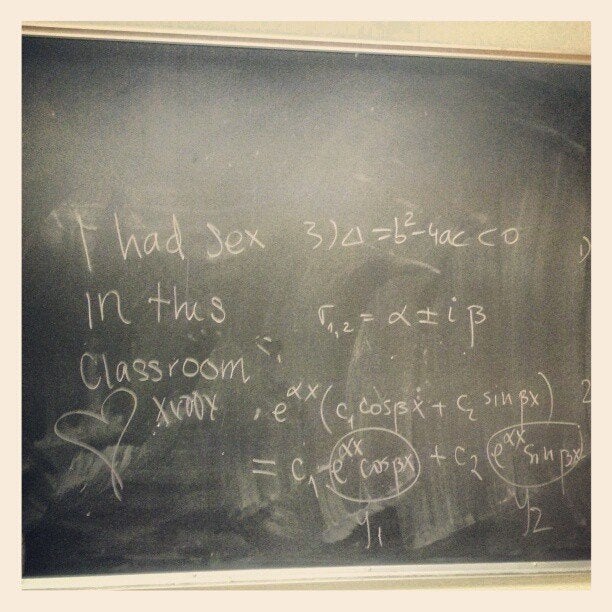 I had sex
in this
classroom
3) Δ = b² - 4ac < 0
r₁,₂ = α ± i β
e^αx (c₁ cosβx + c₂ sinβx)
= c₁ e^αx cosβx + c₂ e^αx sinβx
y₁ y₂